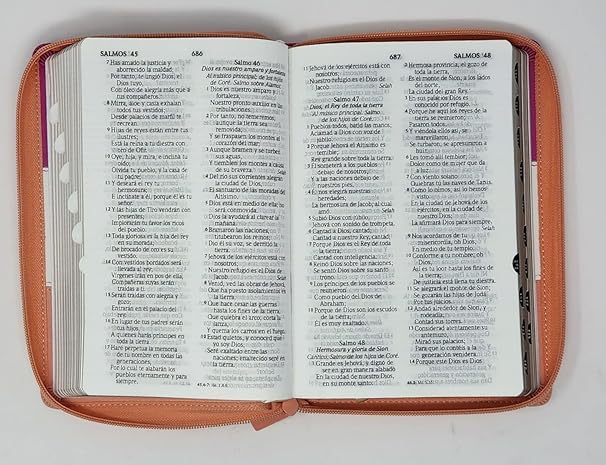 SALMOS 45
686
7 Has amado la justicia y
aborrecido la maldad;
Por tanto, te ungió Dios, el
Dios tuyo,
Con óleo de alegría más que a
tus compañeros.
8 Mirra, áloe y casia exhalan
todos tus vestidos;
Desde palacios de marfil te
recrean.
9 Hijas de reyes están entre tus
ilustres;
Está la reina a tu diestra con
oro de Ofir.
10 Oye, hija, y mira, e inclina tu
oído;
Olvida tu pueblo, y la casa de
tu padre;
11 Y deseará el rey tu
hermosura;
E inclínate a él, porque él es tu
señor.
12 Y las hijas de Tiro vendrán con
presentes;
Implorarán tu favor los ricos
del pueblo.
13 Toda gloriosa es la hija del rey
en su morada;
De brocado de oro es su
vestido.
14 Con vestidos bordados será
llevada al rey;
Vírgenes irán en pos de ella,
Compañeras suyas serán
traídas a ti.
15 Serán traídas con alegría y
gozo;
Entrarán en el palacio del
rey.
16 En lugar de tus padres serán
tus hijos,
A quienes harás príncipes en
toda la tierra.
17 Haré perpetua la memoria
de tu nombre en todas las
generaciones,
Por lo cual te alabarán los
pueblos eternamente y para
siempre.
Salmo 46
Dios es nuestro amparo y fortaleza
Al músico principal; de los hijos
de Coré. Salmo sobre Alamot.
1 Dios es nuestro amparo y
fortaleza,
Nuestro pronto auxilio en las
tribulaciones.
2 Por tanto, no temeremos,
aunque la tierra sea
removida,
Y se traspasen los montes al
corazón del mar;
3 Aunque bramen y se turben
sus aguas,
Y tiemblen los montes a causa
de su braveza. Selah
4 Del río sus corrientes alegran
la ciudad de Dios,
El santuario de las moradas del
Altísimo.
5 Dios está en medio de ella; no
será conmovida.
Dios la ayudará al clarear la
mañana.
6 Bramaron las naciones,
titubearon los reinos;
Dio él su voz, se derritió la
tierra.
7 Jehová de los ejércitos está con
nosotros;
Nuestro refugio es el Dios de
Jacob. Selah
8 Venid, ved las obras de Jehová,
Que ha puesto asolamientos en
la tierra.
9 Que hace cesar las guerras
hasta los fines de la tierra.
Que quiebra el arco, corta la
lanza,
Y quema los carros en el fuego.
10 Estad quietos, y conoced que
yo soy Dios;
Seré exaltado entre las
naciones; enaltecido seré en
la tierra.
687
SALMOS 48
11 Jehová de los ejércitos está con
nosotros;
Nuestro refugio es el Dios de
Jacob. Selah
Salmo 47
Dios, el Rey de toda la tierra
Al músico principal. Salmo
de los hijos de Coré.
1 Pueblos todos, batid las manos;
Aclamad a Dios con voz de
júbilo.
2 Porque Jehová el Altísimo es
temible;
Rey grande sobre toda la tierra.
3 El someterá a los pueblos
debajo de nosotros,
Y a las naciones debajo de
nuestros pies.
4 El nos elegirá nuestras
heredades;
La hermosura de Jacob, al cual
amó. Selah
5 Subió Dios con júbilo,
Jehová con sonido de trompeta.
6 Cantad a Dios, cantad;
Cantad a nuestro Rey, cantad;
7 Porque Dios es el Rey de toda
la tierra;
Cantad con inteligencia.
8 Reinó Dios sobre las naciones;
Se sentó Dios sobre su santo
trono.
9 Los príncipes de los pueblos se
reunieron
Como pueblo del Dios de
Abraham;
Porque de Dios son los escudos
de la tierra;
El es muy exaltado.
Salmo 48
Hermosura y gloria de Sion
Cántico. Salmo de los hijos de Coré.
1 Grande es Jehová, y digno de
ser en gran manera alabado
En la ciudad de nuestro Dios,
en su monte santo.
2 Hermosa provincia, el gozo de
toda la tierra,
Es el monte de Sion, a los lados
del norte,
La ciudad del gran Rey.
3 En sus palacios Dios es
conocido por refugio.
4 Porque he aquí los reyes de la
tierra se reunieron;
Pasaron todos.
5 Y viéndola ellos así, se
maravillaron,
Se turbaron, se apresuraron a
huir.
6 Les tomó allí temblor;
Dolor como de mujer que da
a luz.
7 Con viento solano
Quiebras tú las naves de Tarsis.
8 Como lo oímos, así lo hemos
visto
En la ciudad de Jehová de los
ejércitos, en la ciudad de
nuestro Dios;
La afirmará Dios para siempre.
Selah
9 Nos acordamos de tu
misericordia, oh Dios,
En medio de tu templo.
10 Conforme a tu nombre, oh
Dios,
Así es tu loor hasta los fines de
la tierra;
De justicia está llena tu diestra.
11 Se alegrará el monte de Sion;
Se gozarán las hijas de Judá
Por tus juicios.
12 Andad alrededor de Sion, y
rodeadla;
Contad sus torres.
13 Considerad atentamente su
antemuro,
Mirad sus palacios;
Para que lo contéis a la
generación venidera.
14 Porque este Dios es Dios